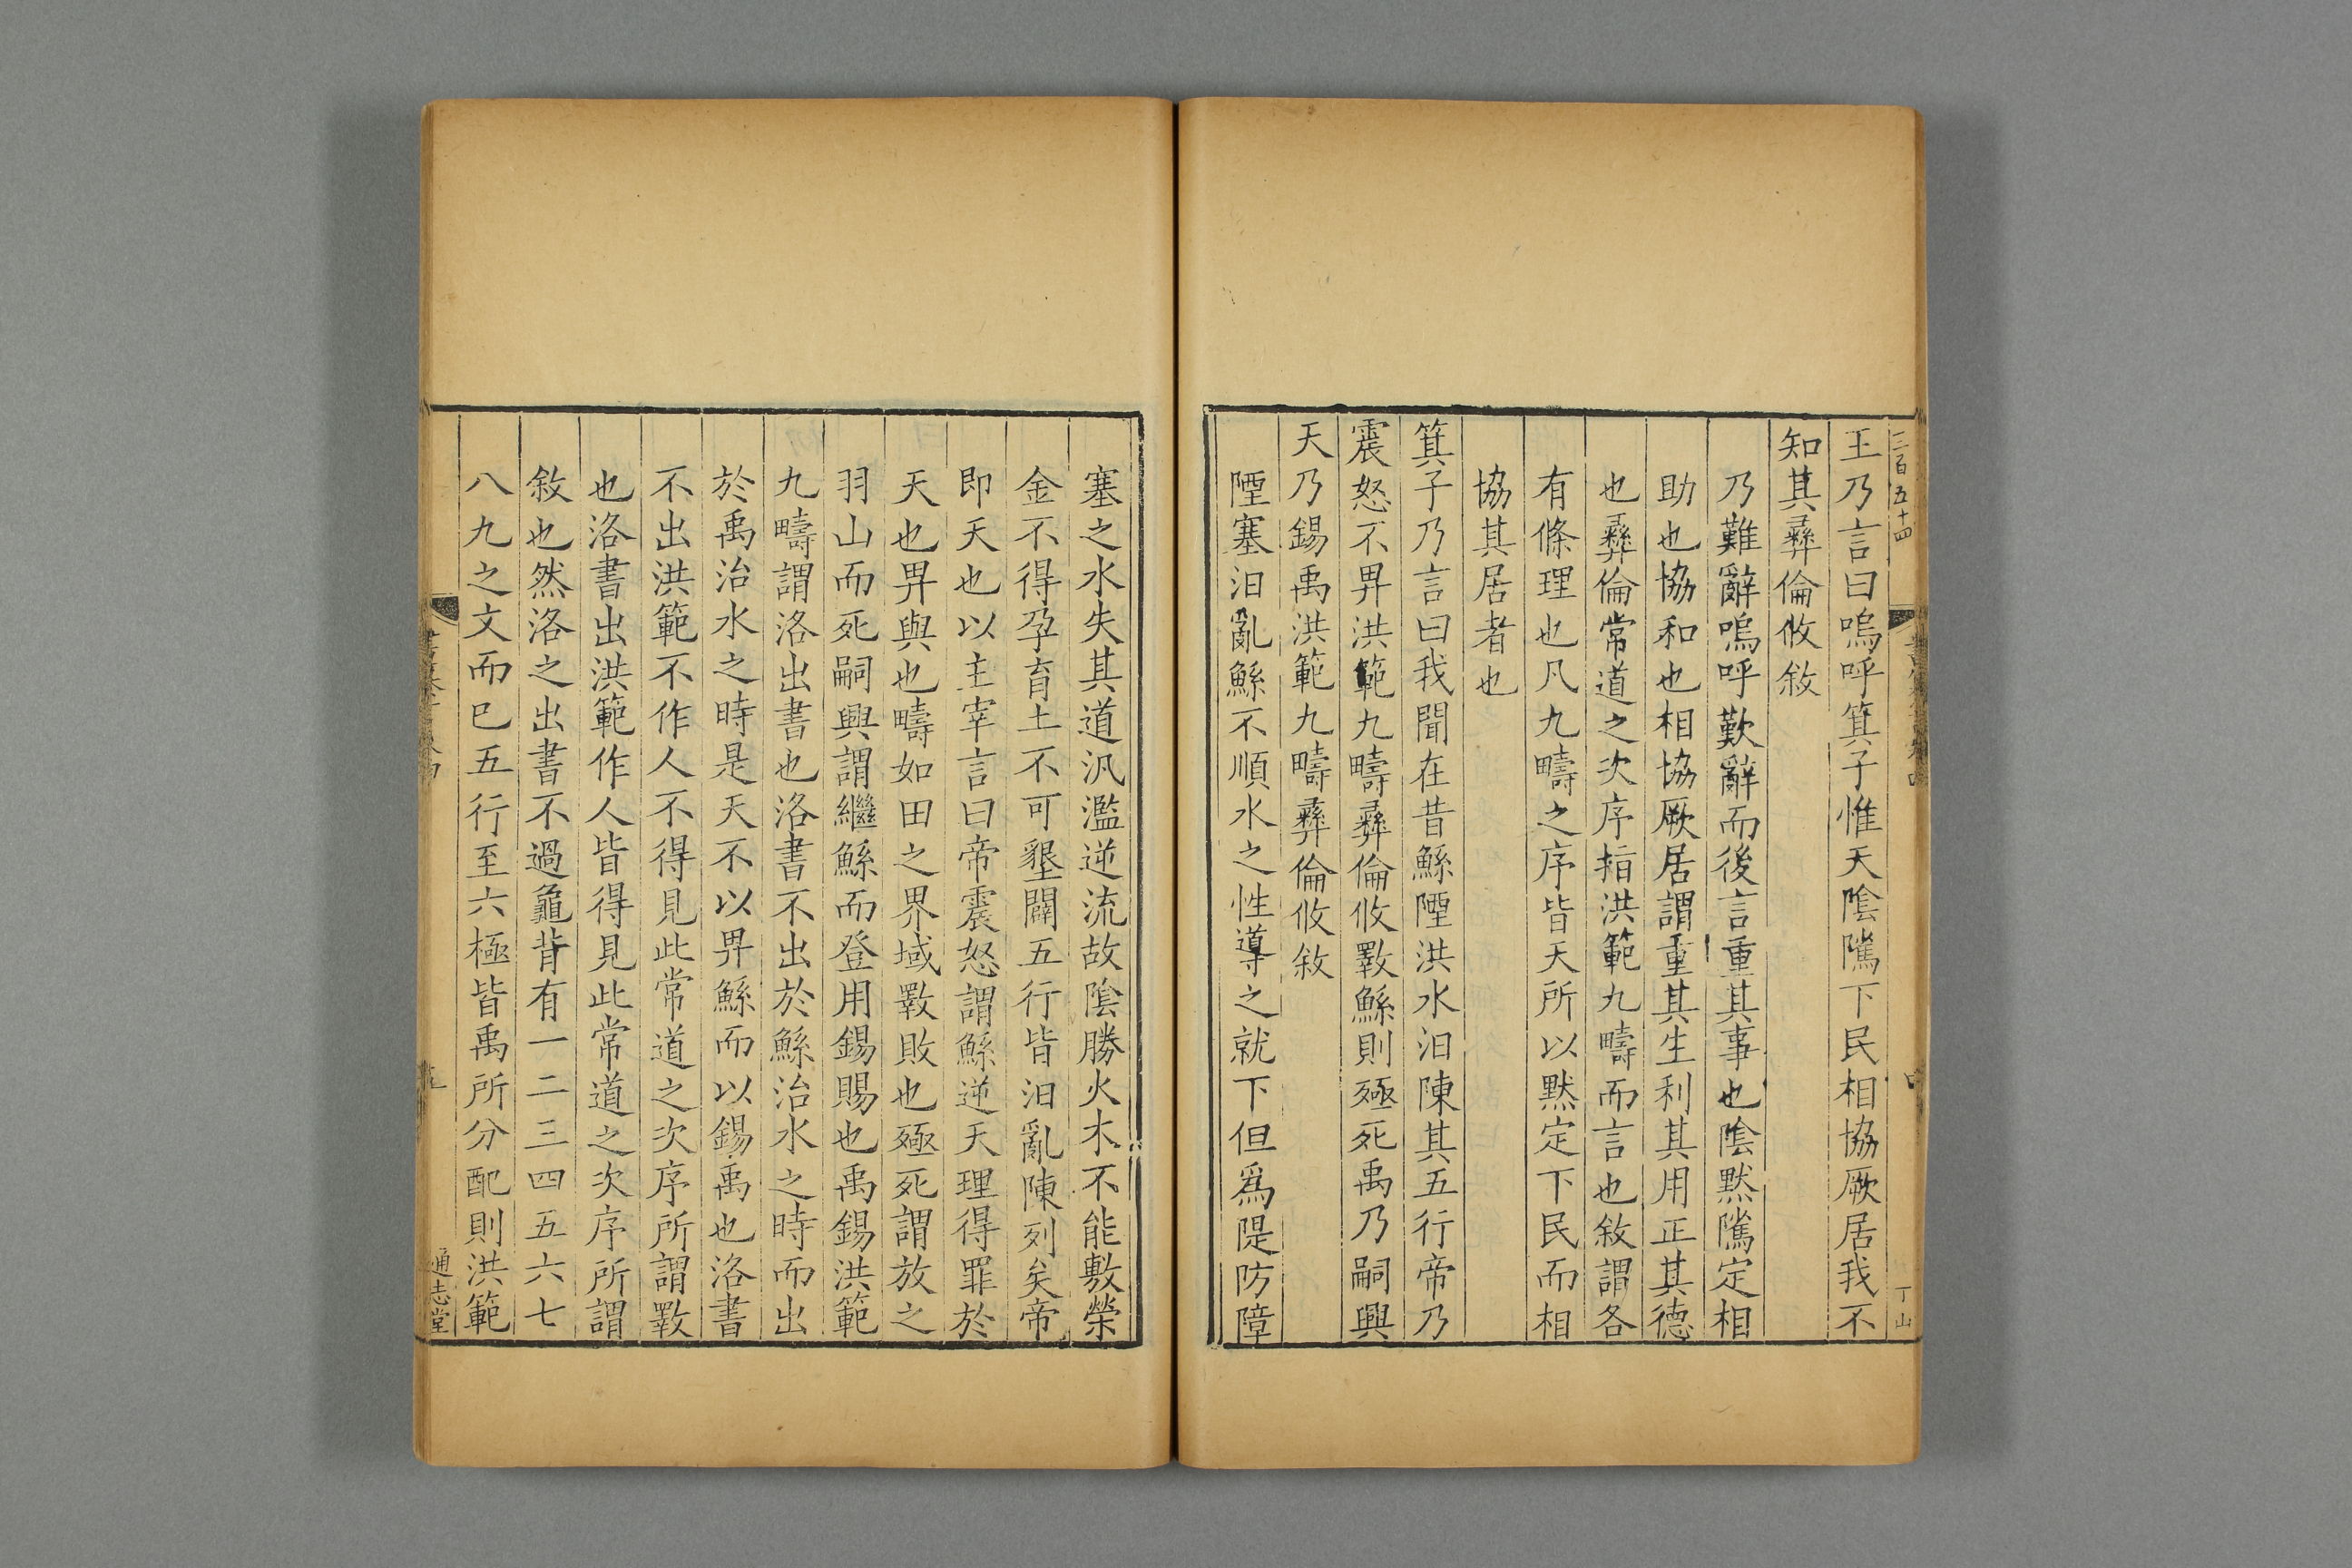 三百五十四
丁山
王乃言曰嗚呼箕子惟天陰隲下民相協厥居我不
知其彝倫攸敘
乃難辭嗚呼歎辭而後言重其事也陰默隲定相
助也協和也相協厥居謂重其生利其用正其德
也彝倫常道之次序指洪範九疇而言也敘謂各
有條理也凡九疇之序皆天所以默定下民而相
協其居者也
箕子乃言曰我聞在昔鯀陻洪水汨陳其五行帝乃
震怒不畀洪範九疇彝倫攸斁鯀則殛死禹乃嗣興
天乃錫禹洪範九疇彝倫攸敘
陻塞汨亂鯀不順水之性導之就下但爲隄防障
塞之水失其道汎濫逆流故陰勝火木不能敷榮
金不得孕育土不可墾闢五行皆汨亂陳列矣帝
即天也以主宰言曰帝震怒謂鯀逆天理得罪於
天也畀與也疇如田之界域斁敗也殛死謂放之
羽山而死嗣興謂繼鯀而登用錫賜也禹錫洪範
九疇謂洛出書也洛書不出於鯀治水之時而出
於禹治水之時是天不以畀鯀而以錫禹也洛書
不出洪範不作人不得見此常道之次序所謂斁
也洛書出洪範作人皆得見此常道之次序所謂
敘也然洛之出書不過龜背有一二三四五六七
八九之文而已五行至六極皆禹所分配則洪範
通志堂